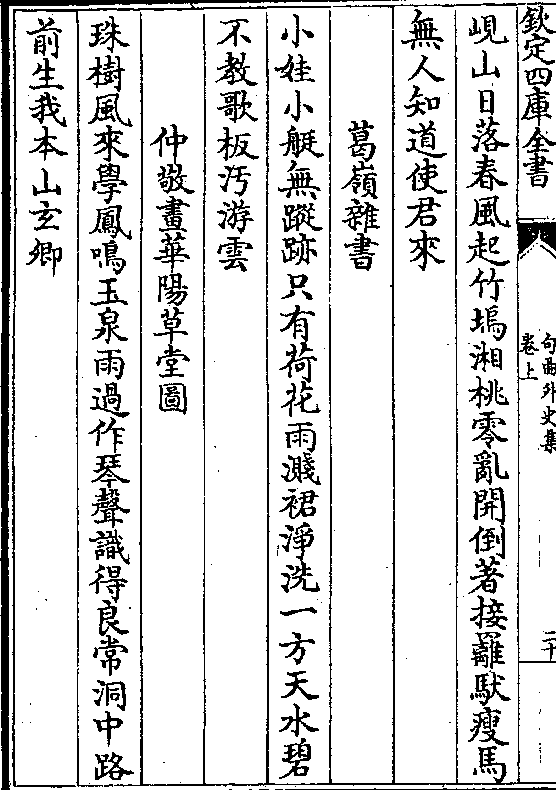 欽定四庫全書
句曲外史集
卷上
二十
峴山日落春風起竹塢湘桃零亂開倒著接䍦馱瘦馬
無人知道使君來
葛嶺雜書
小娃小艇無蹤跡只有荷花雨濺裙淨洗一方天水碧
不教歌板汚游雲
仲敬畫華陽草堂圖
珠樹風來學鳳鳴玉泉雨過作琴聲識得良常洞中路
前生我本山玄卿